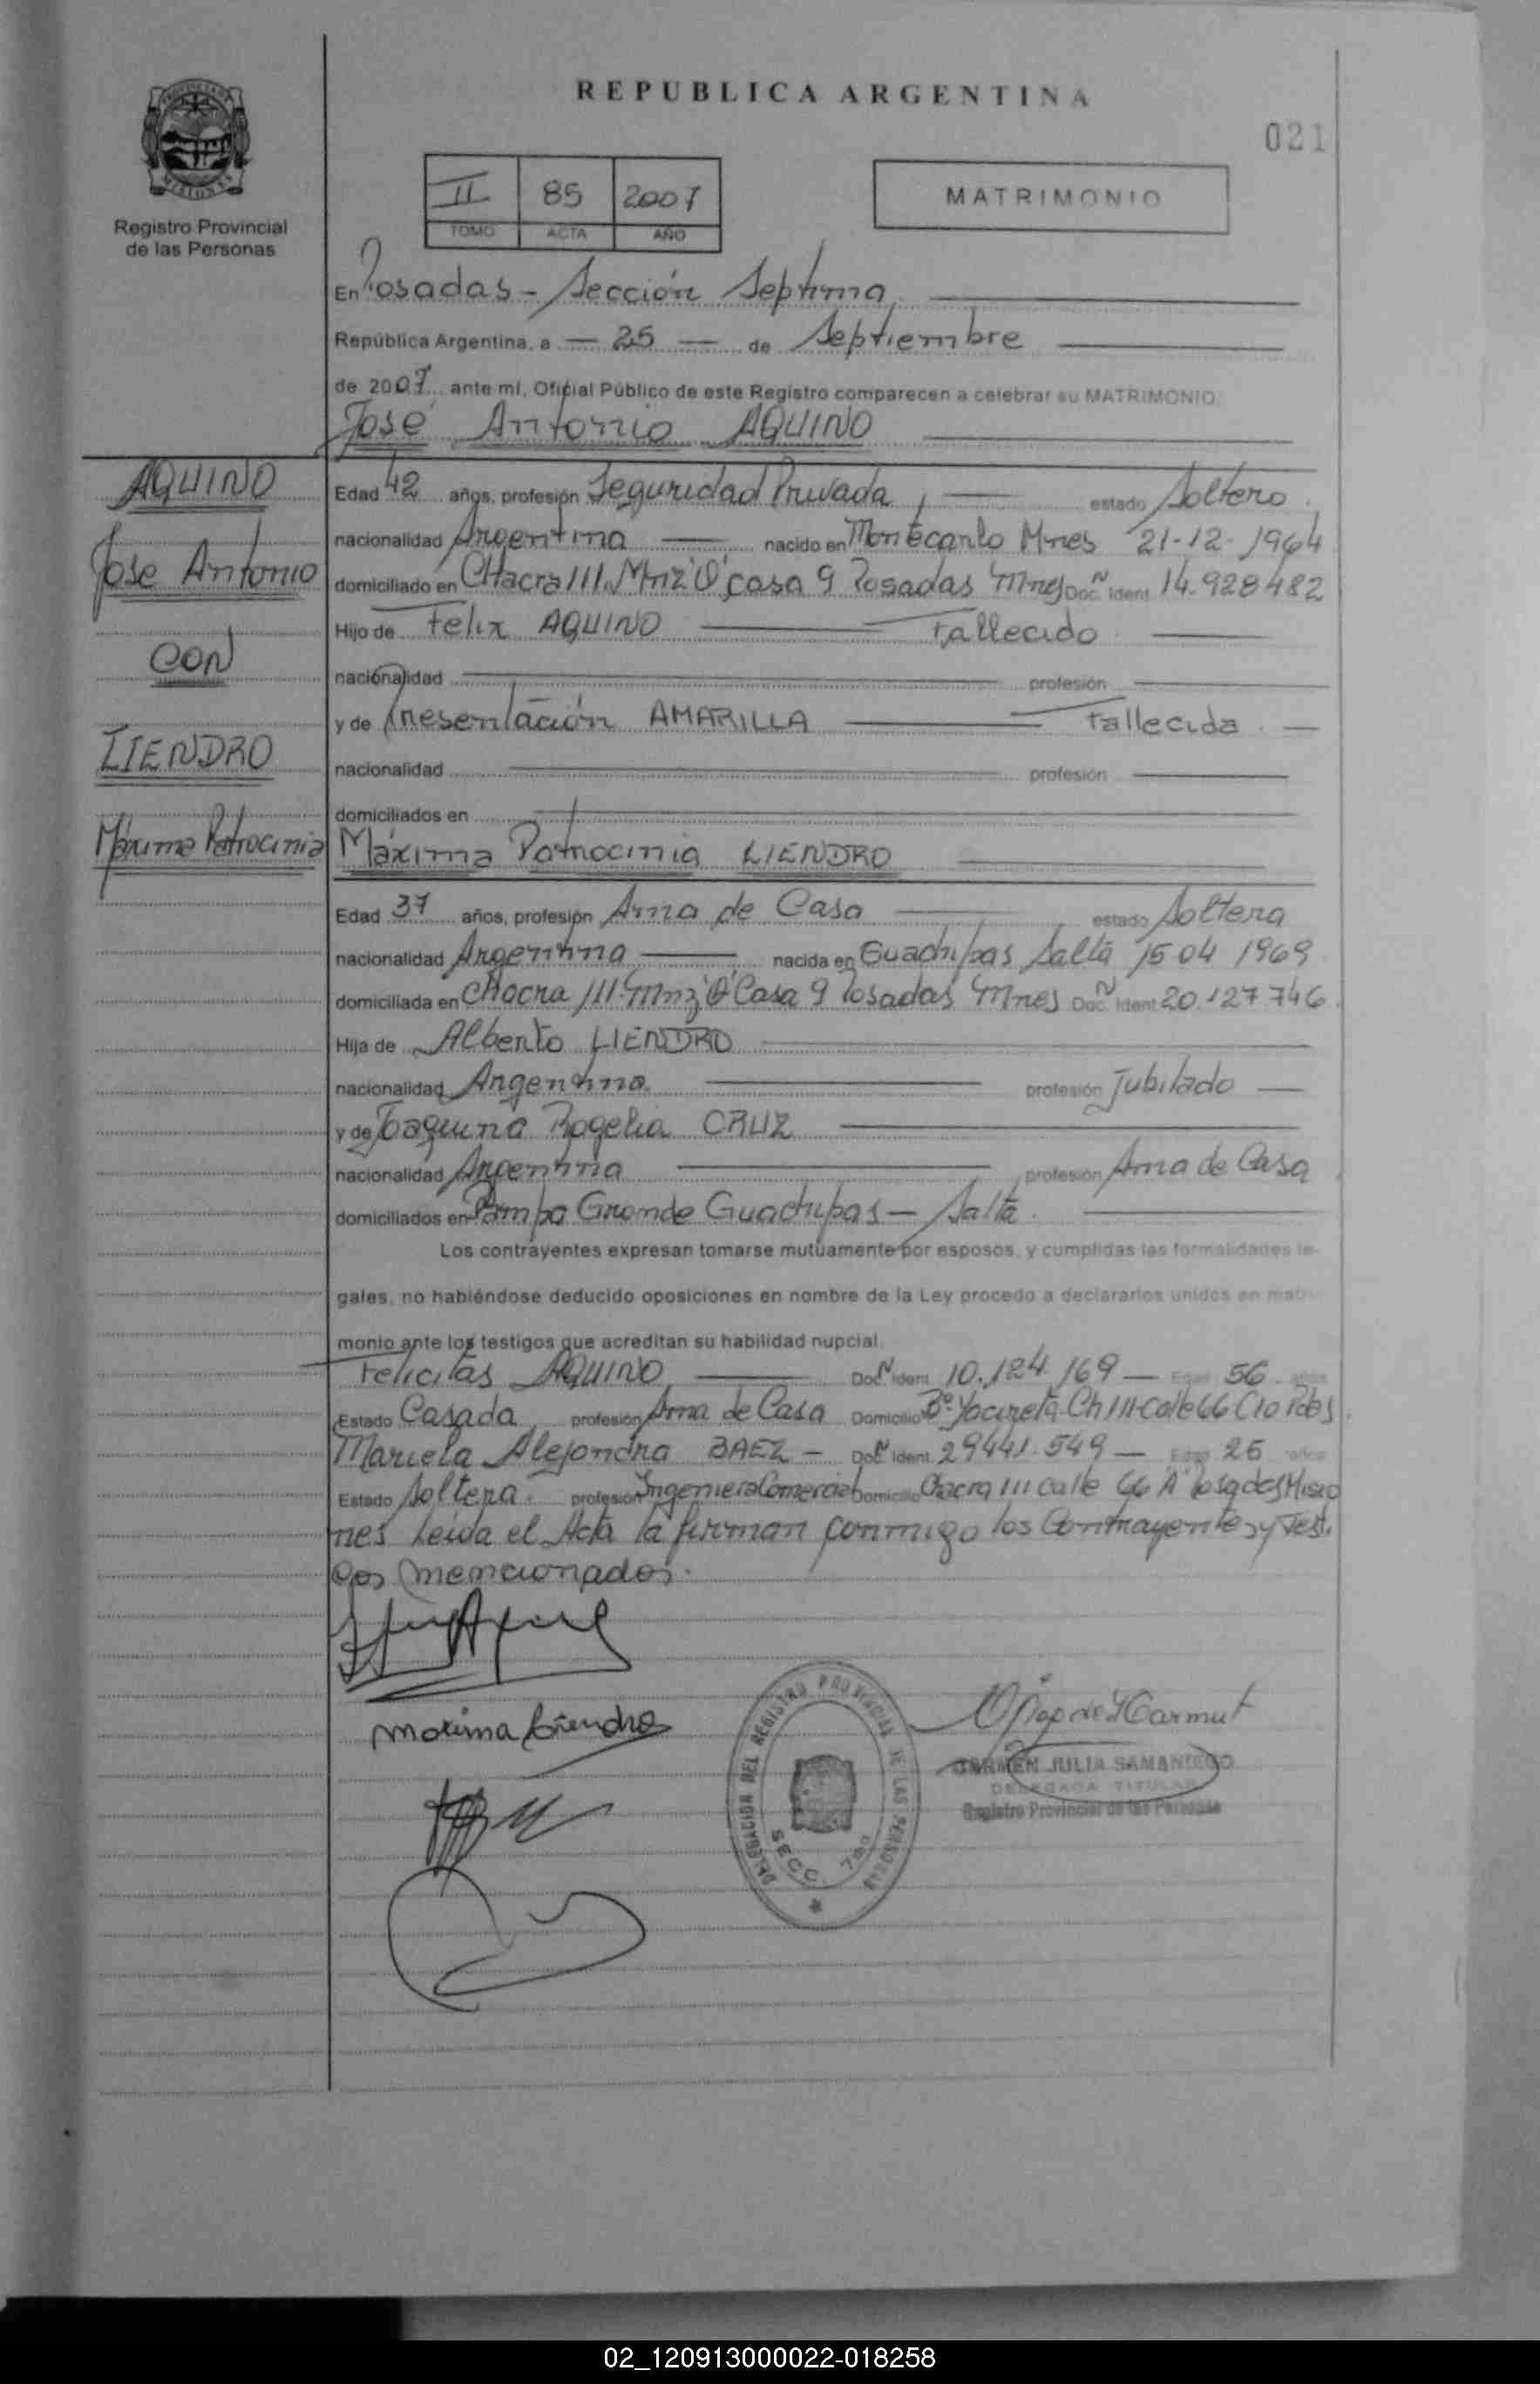 REPUBLICA ARGENTINA
021
II 85 2007
TOMO ACTA AÑO
MATRIMONIO
Registro Provincial
de las Personas
En Posadas - Sección Septima
República Argentina, a 25 de Septiembre
de 2007 ante mí, Oficial Público de este Registro comparecen a celebrar su MATRIMONIO:
José Antonio AQUINO
AQUINO
Jose Antonio
CON
LIENDRO
Máxima Patrocinia
Edad 42 años, profesión Seguridad Privada, estado Soltero
nacionalidad Argentina nacido en Montecarlo Mnes 21-12-1964
domiciliado en CHacra 111 Mnz "O" casa 9 Posadas Mnes Doc. N Ident. 14.928482
Hijo de Felix AQUINO Fallecido
nacionalidad profesión
y de Presentación AMARILLA Fallecida
nacionalidad profesión
domiciliados en
Máxima Patrocinia LIENDRO
Edad 37 años, profesión Ama de Casa estado Soltera
nacionalidad Argentina nacida en Guachipas Salta 15 04 1969
domiciliada en CHacra 111 Mnz "O" Casa 9 Posadas Mnes Doc. N Ident. 20.127 746
Hija de Alberto LIENDRO
nacionalidad Argentina profesión Jubilado
y de Joaquina Rogelia CRUZ
nacionalidad Argentina profesión Ama de Casa
domiciliados en Pampa Grande Guachipas - Salta
Los contrayentes expresan tomarse mutuamente por esposos, y cumplidas las formalidades le-
gales, no habiéndose deducido oposiciones en nombre de la Ley procedo a declararlos unidos en matri-
monio ante los testigos que acreditan su habilidad nupcial.
Felicitas AQUINO Doc. N Ident. 10.124 169 - Edad 56 años
Estado Casada profesión Ama de Casa Domicilio Bº Yacireta Ch 111 calle 66 C10 Pdas
Mariela Alejandra BAEZ - Doc. N Ident. 29441.549 - Edad 25 años
Estado Soltera profesión Ingeniera Comercial Domicilio Chacra 111 calle 66 A Posadas Misio
nes Leída el Acta la firman conmigo los Contrayentes y Testi
gos mencionados.
Maxima Liendro
DELEGACION DEL REGISTRO PROVINCIAL DE LAS PERSONAS
SECC. 7ma
CARMEN JULIA SAMANIEGO
DELEGADA TITULAR
Registro Provincial de las Personas
02_120913000022-018258